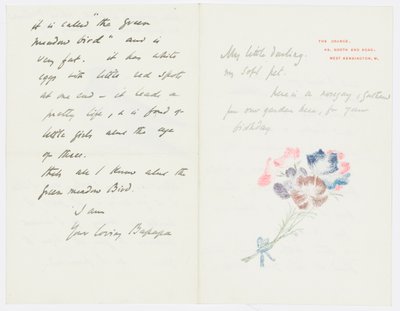 It is called "the Green
meadow bird" and is
very fat. it has white
eggs with little red spots
at one end – it leads a
pretty life, & is fond of
little girls about the age
of three.
thats all I know about the
Green meadow Bird.
I am
Your loving Bapapa
THE GRANGE,
49, NORTH END ROAD,
WEST KENSINGTON, W.
My little darling.
my soft pet.
here is a nosegay, gathered
from our garden here, for your
birthday